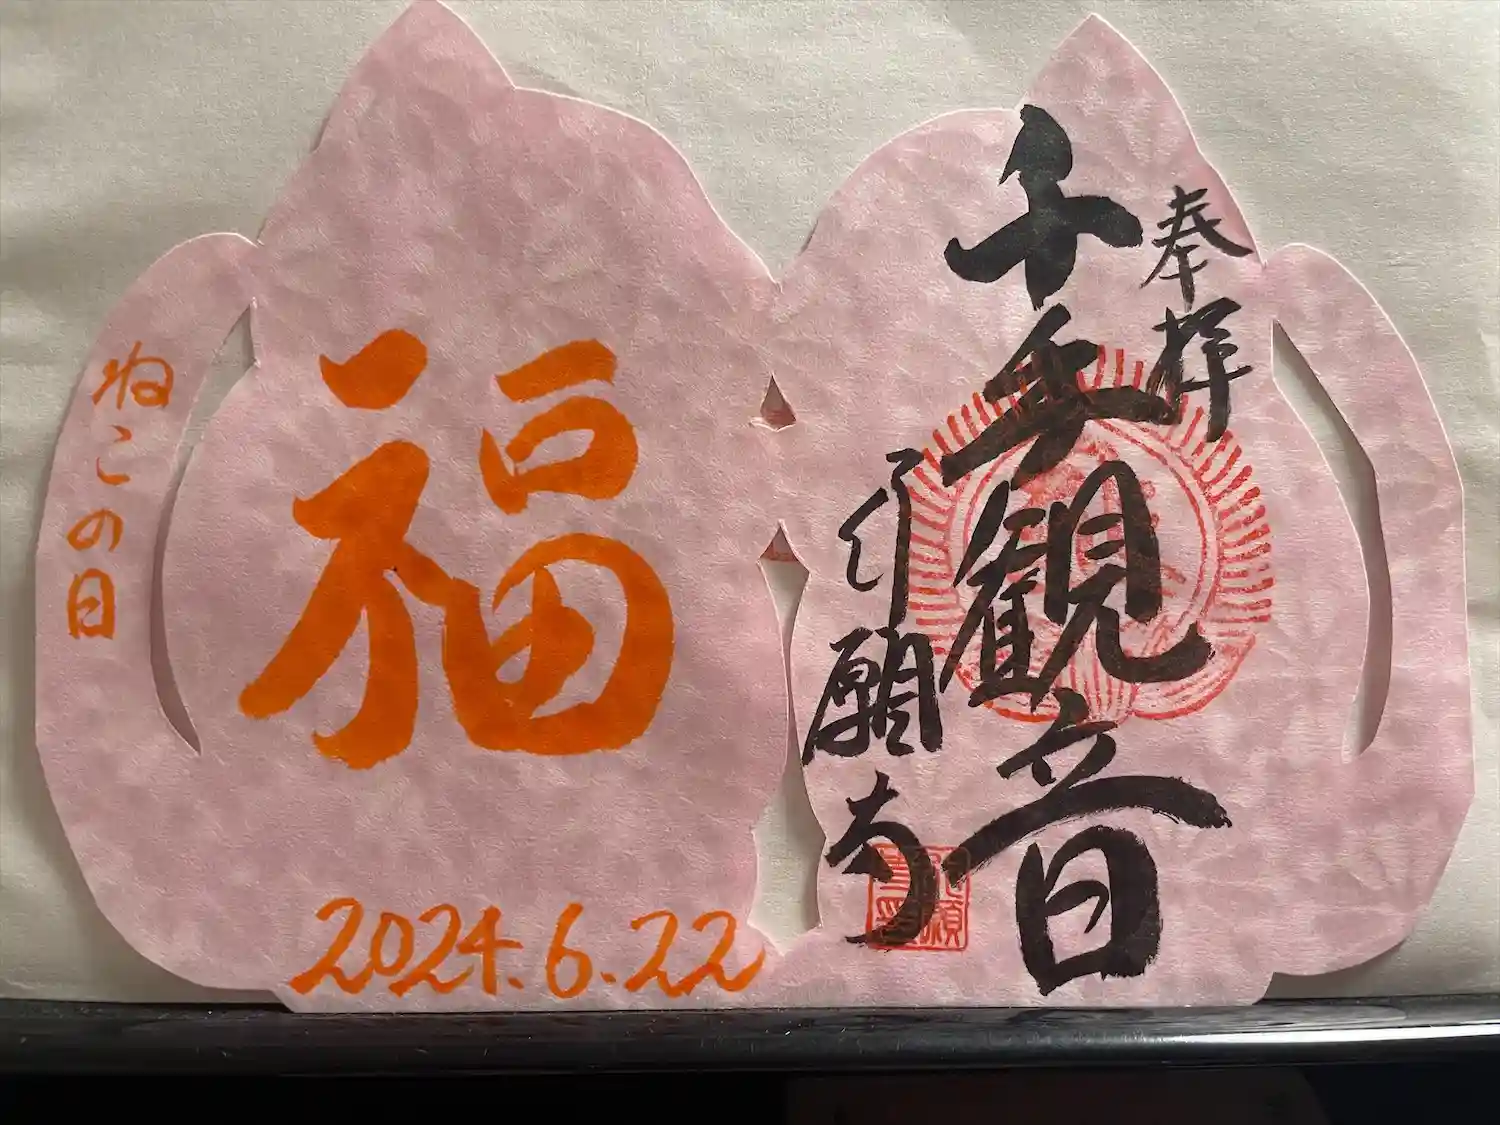 奉拝
千手観音
引願寺
福
ねこの日
2024.6.22